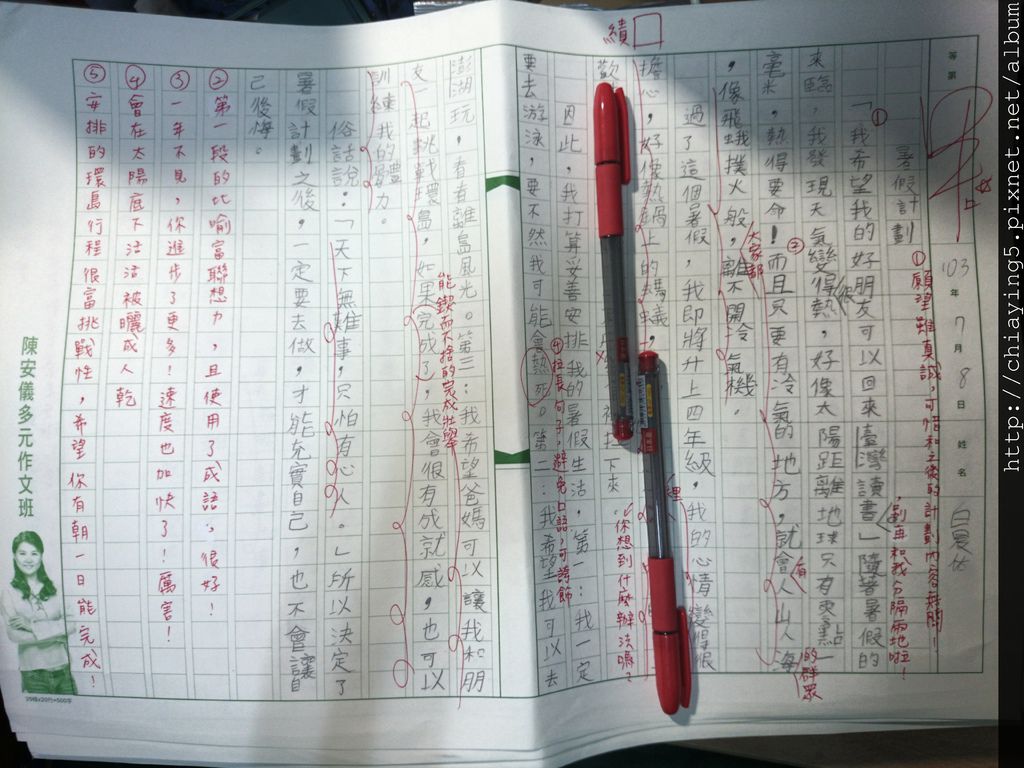 等第
103年7月8日 姓名
暑假計劃
「我希望我的好朋友可以回來臺灣讀書」隨著暑假的
來臨,我發現天氣變得熱,好像太陽距離地球只有零點一
毫米,熱得要命!而且只要有冷氣的地方,就會人山人海
,像飛蛾撲火一般,離不開冷氣機。
過了這個暑假,我即將升上四年級,我的心情變得很
擔心,好像熱鍋上的螞蟻
歡
因此,我打算妥善安排我的暑假生活,第一:我一定
要去游泳,要不然我可能會熱死。第二:我希望我可以去
澎湖玩,看看離島風光。第三:我希望爸媽可以讓我和朋
友一起挑戰環島,如果完成了,我會很有成就感,也可以
訓練我的體力。
俗話說:「天下無難事,只怕有心人。」所以決定了
暑假計劃之後,一定要去做,才能充實自己,也不會讓自
己後悔。
①願望雖真誠,可惜和之後的計劃內容無關!
別再和我分隔兩地啦!
很
大家都
有
的群眾
裡
你想到什麼辦法嗎?
④拉長句子,避免口語,可誇飾
能鍥而不捨的完成壯舉
續
②第一段的比喻富聯想力,且使用了成語,很好!
③一年不見,你進步了更多!速度也加快了!厲害!
④會在太陽底下活活被曬成人乾
⑤安排的環島行程很富挑戰性,希望你有朝一日能完成!
陳安儀多元作文班
http://chiaying5.pixnet.net/album